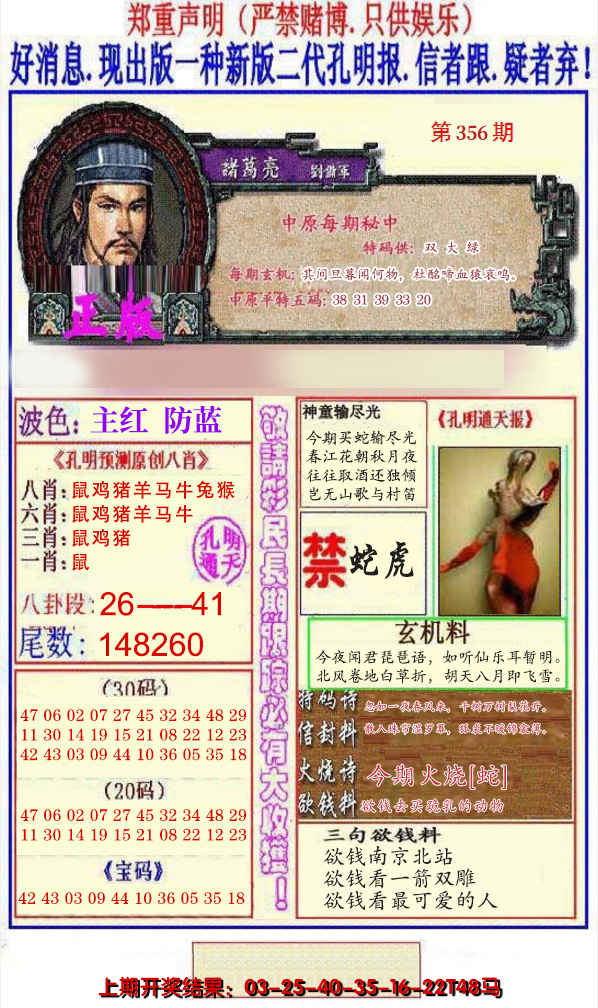 郑重声明（严禁赌博.只供娱乐）
好消息.现出版一种新版二代孔明报.信者跟.疑者弃！
第356期
諸葛亮 劉備軍
中原每期秘中
特码供：双 大 绿
每期玄机：其间旦暮闻何物，杜酩啼血猿哀鸣。
中原平特五码：38 31 39 33 20
正版
波色：主红 防蓝
《孔明预测原创八肖》
八肖：鼠鸡猪羊马牛兔猴
六肖：鼠鸡猪羊马牛
三肖：鼠鸡猪
一肖：鼠
孔明
通天
八卦段：26——41
尾数：148260
（30码）
47 06 02 07 27 45 32 34 48 29
11 30 14 19 15 21 08 22 12 23
42 43 03 09 44 10 36 05 35 18
（20码）
47 06 02 07 27 45 32 34 48 29
11 30 14 19 15 21 08 22 12 23
《宝码》
42 43 03 09 44 10 36 05 35 18
敬請彩民長期跟踪必有大收獲！
神童输尽光
今期买蛇输尽光
春江花朝秋月夜
往往取酒还独倾
岂无山歌与村笛
《孔明通天报》
禁 蛇虎
玄机料
今夜闻君琵琶语，如听仙乐耳暂明。
北风卷地白草折，胡天八月即飞雪。
特码诗 忽如一夜春风来，千树万树梨花开。
信封料 散入珠帘湿罗幕，狐裘不暖锦衾薄。
火烧诗 今期火烧[蛇]
欲钱料 欲钱去买跪乳的动物
三句欲钱料
欲钱南京北站
欲钱看一箭双雕
欲钱看最可爱的人
上期开奖结果：03-25-40-35-16-22T48马